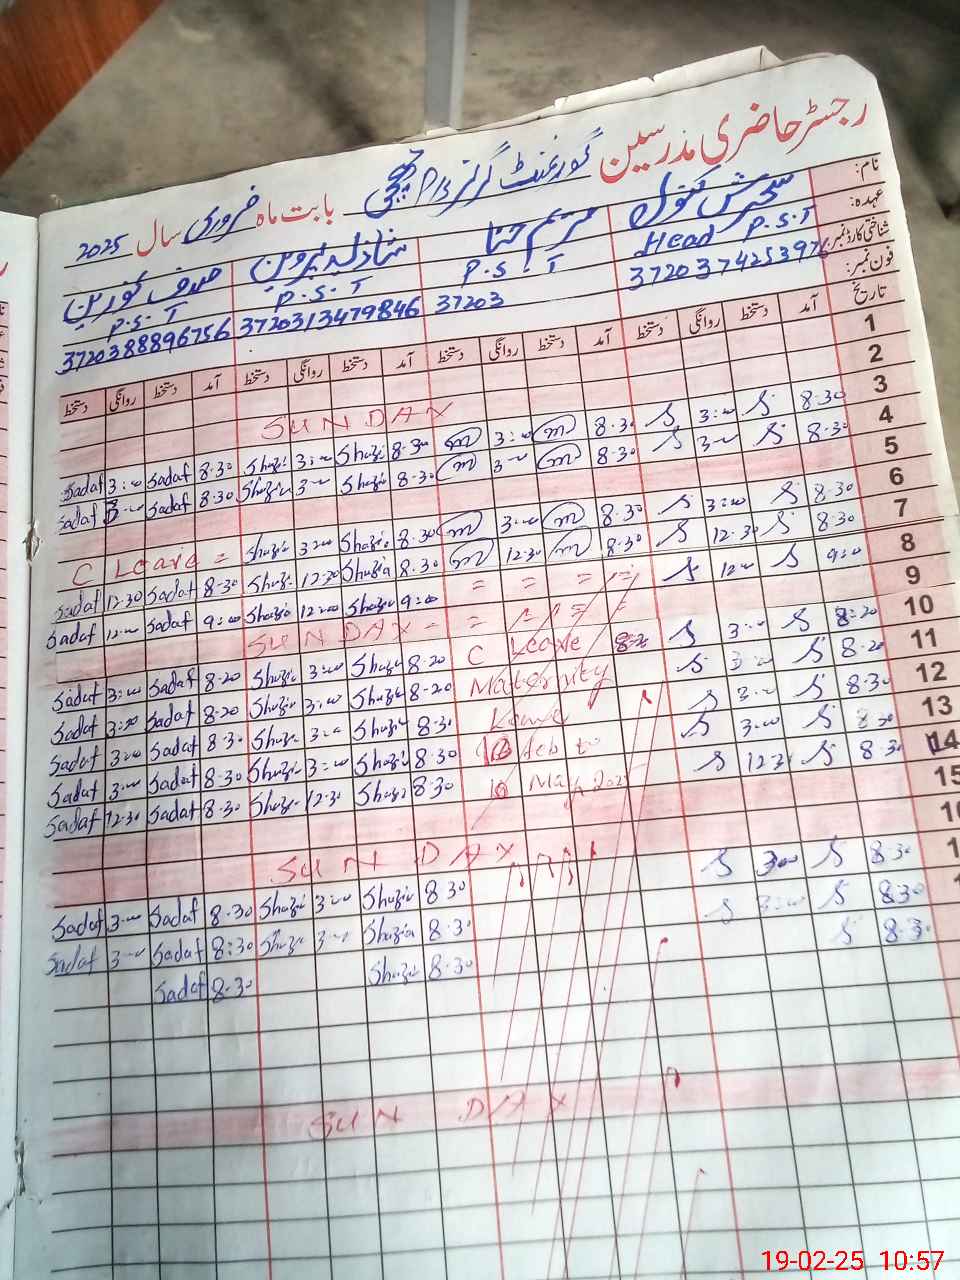 رجسٹر حاضری مدرسین گورنمنٹ گرلز بابت ماہ فروری سال 2025
نام: سحرش کنول مریم حنا شازیہ پروین صدف نورین
عہدہ: Head P.S.T P.S.T P.S.T P.S.T
شناختی کارڈ نمبر: 37203 3720313479846 3720388896756
فون نمبر:
تاریخ آمد دستخط روانگی دستخط آمد دستخط روانگی دستخط آمد دستخط روانگی دستخط آمد دستخط روانگی دستخط
1
2 SUNDAY
3 8.30 S 3:00 S 8.30 m 3:00 m 8.30 Shazia 3:00 Shazia 8.30 Sadaf 3:00 Sadaf
4 8.30 S 3:00 S 8.30 m 3:00 m 8.30 Shazia 3:00 Shazia 8.30 Sadaf 3:00 Sadaf
5
6 8.30 S 3:00 S 8.30 m 3:00 m 8.30 Shazia 3:00 Shazia C Leave =
7 8.30 S 12.30 S 8.30 m 12.30 m 8.30 Shazia 12.30 Shazia 8.30 Sadaf 12.30 Sadaf
8 9:00 S 12:00 S = = = = 9:00 Shazia 12:00 Shazia 9:00 Sadaf 12:00 Sadaf
9 SUNDAY
10 8:20 S 3:00 S C Leave 8.20 Shazia 3:00 Shazia 8.20 Sadaf 3:00 Sadaf
11 8.20 S 3:00 S Maternity 8.20 Shazia 3:00 Shazia 8.20 Sadaf 3:00 Sadaf
12 8.30 S 3:00 S Leave 8.30 Shazia 3:00 Shazia 8.30 Sadaf 3:00 Sadaf
13 8.30 S 3:00 S 10 Feb to 8.30 Shazia 3:00 Shazia 8.30 Sadaf 3:00 Sadaf
14 8.30 S 12.30 S 10 2025 8.30 Shazia 12.30 Shazia 8.30 Sadaf 12.30 Sadaf
15
SUNDAY
8.30 S 3:00 S 8.30 Shazia 3:00 Shazia 8.30 Sadaf 3:00 Sadaf
8.30 S 3:00 S 8.30 Shazia 3:00 Shazia 8:30 Sadaf 3:00 Sadaf
8.30 S 8.30 Shazia 8.30 Sadaf
SUNDAY
19-02-25 10:57